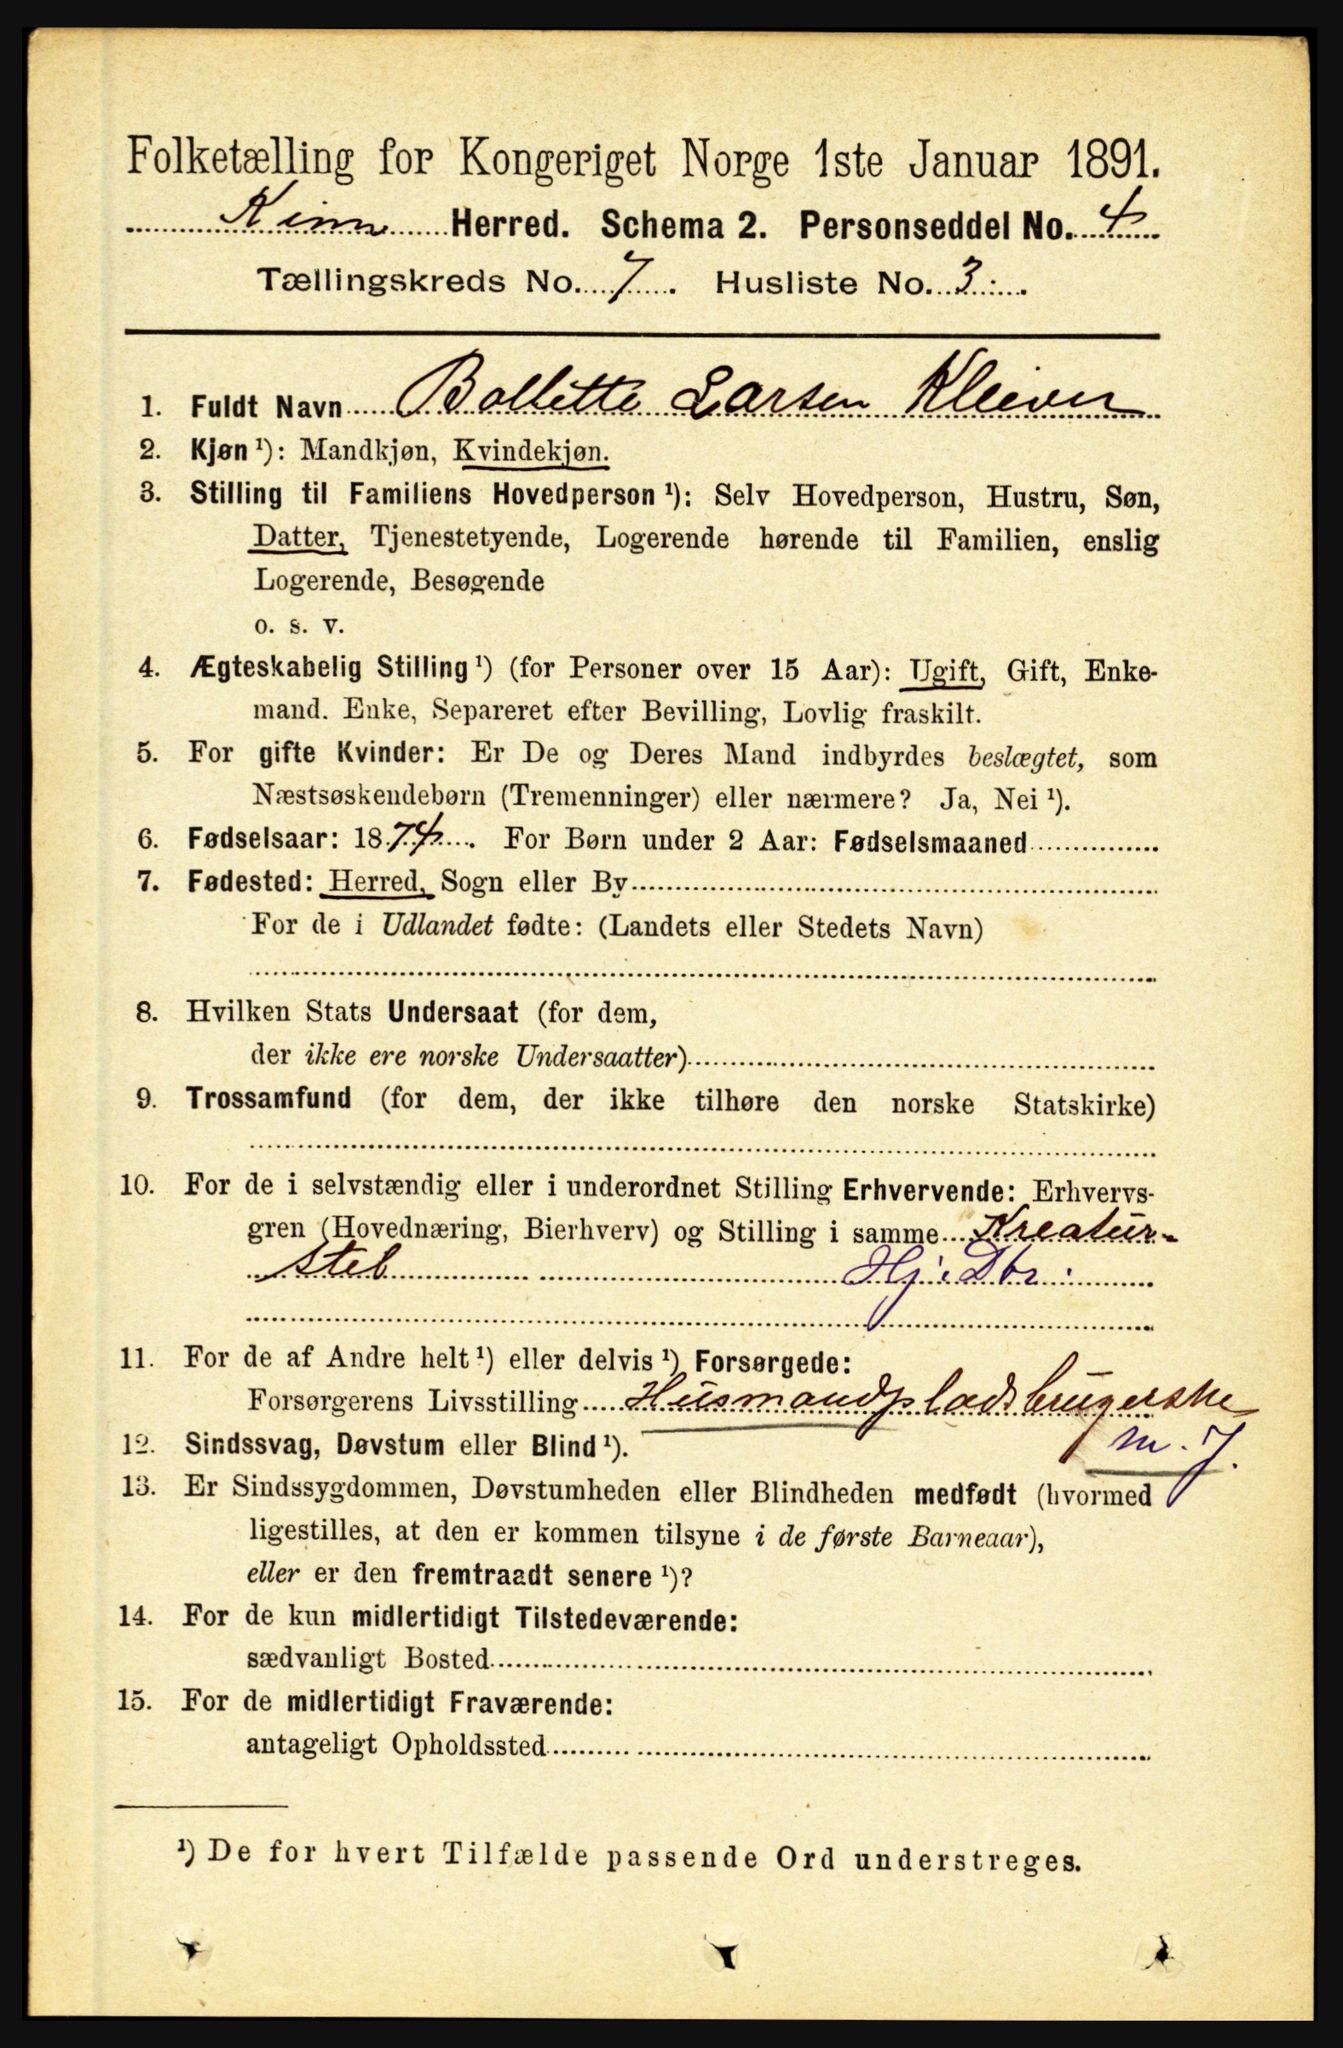 Folketælling for Kongeriget Norge 1ste Januar 1891.
Kinn Herred. Schema 2. Personseddel No. 4
Tællingskreds No. 7. Husliste No. 3.
1. Fuldt Navn Bollette Larsen Kleiven
2. Kjøn ¹): Mandkjøn, Kvindekjøn.
3. Stilling til Familiens Hovedperson ¹): Selv Hovedperson, Hustru, Søn,
Datter, Tjenestetyende, Logerende hørende til Familien, enslig
Logerende, Besøgende
o. s. v.
4. Ægteskabelig Stilling ¹) (for Personer over 15 Aar): Ugift, Gift, Enke-
mand. Enke, Separeret efter Bevilling, Lovlig fraskilt.
5. For gifte Kvinder: Er De og Deres Mand indbyrdes beslægtet, som
Næstsøskendebørn (Tremenninger) eller nærmere? Ja, Nei ¹).
6. Fødselsaar: 1874. For Børn under 2 Aar: Fødselsmaaned
7. Fødested: Herred, Sogn eller By
For de i Udlandet fødte: (Landets eller Stedets Navn)
8. Hvilken Stats Undersaat (for dem,
der ikke ere norske Undersaatter)
9. Trossamfund (for dem, der ikke tilhøre den norske Statskirke)
10. For de i selvstændig eller i underordnet Stilling Erhvervende: Erhvervs-
gren (Hovednæring, Bierhverv) og Stilling i samme Kreatur-
stel Hj. Dtr.
11. For de af Andre helt ¹) eller delvis ¹) Forsørgede:
Forsørgerens Livsstilling Husmandspladsbrugerske
12. Sindssvag, Døvstum eller Blind ¹). m. J.
13. Er Sindssygdommen, Døvstumheden eller Blindheden medfødt (hvormed
ligestilles, at den er kommen tilsyne i de første Barneaar),
eller er den fremtraadt senere ¹)?
14. For de kun midlertidigt Tilstedeværende:
sædvanligt Bosted
15. For de midlertidigt Fraværende:
antageligt Opholdssted
¹) De for hvert Tilfælde passende Ord understreges.